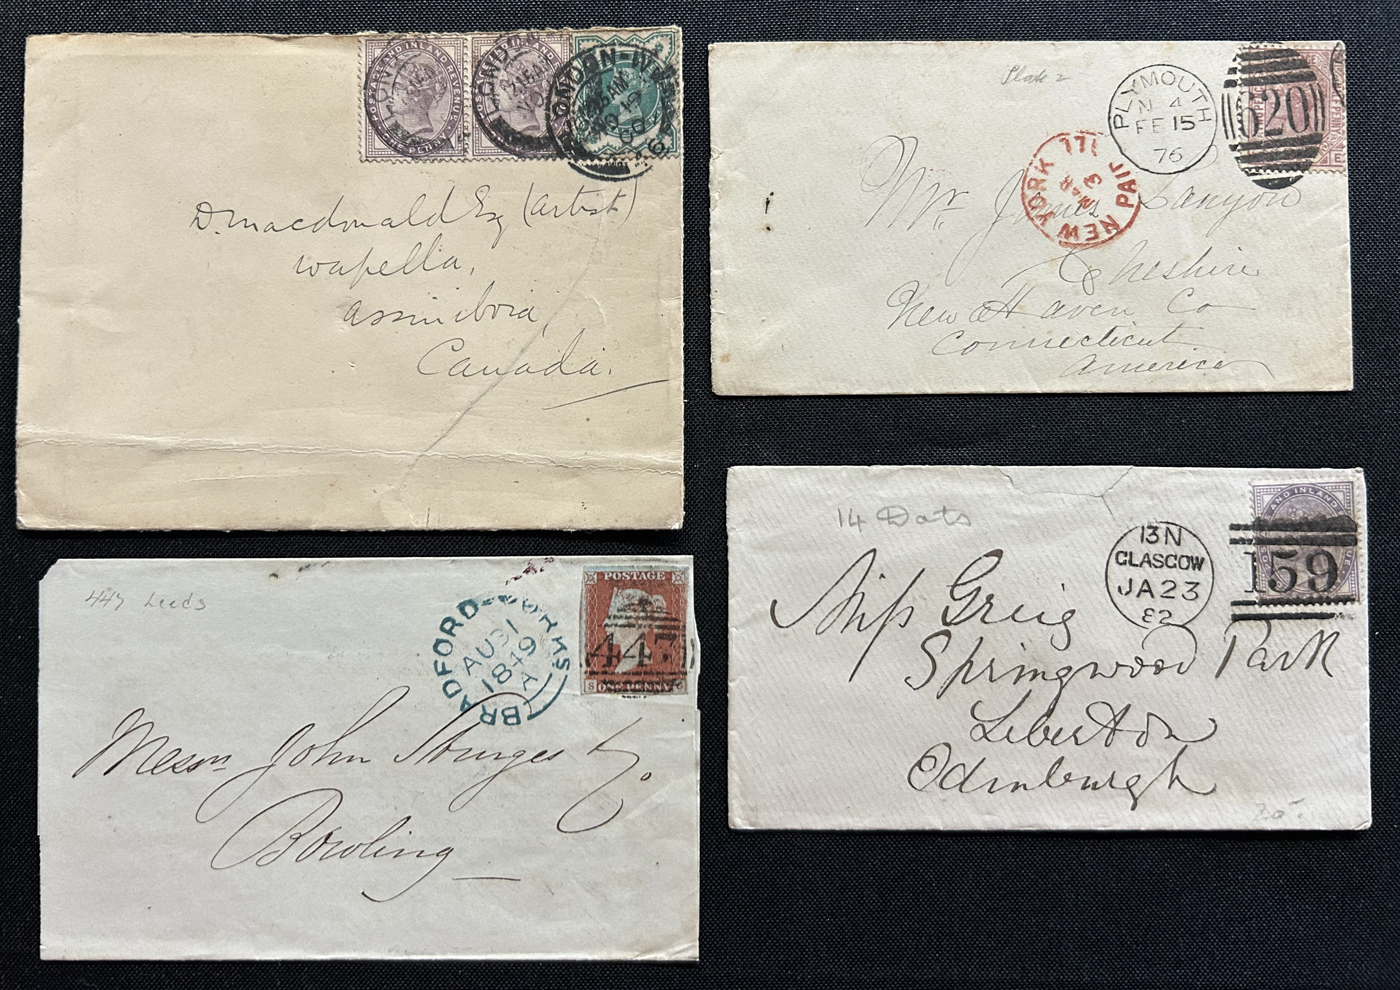 D. Macdonald Esq (artist)
Wapella,
Assiniboia,
Canada.
POSTAGE AND INLAND REVENUE
LONDON
LONDON
LONDON
Plate 2
PLYMOUTH
N 4
FE 15
76
620
NEW YORK
PAID ALL
Mr. James Lanyon
Cheshire
New Haven Co
Connecticut
America
447 Leeds
BRADFORD-YORKS
AU 31
1849
A
POSTAGE
447
S
ONE PENNY
Messrs John Sturges & Co.
Bowling
14 Dots
13 N
GLASGOW
JA 23
82
AND INLAND
159
Miss Greig
Springwood Park
Liberton
Edinburgh